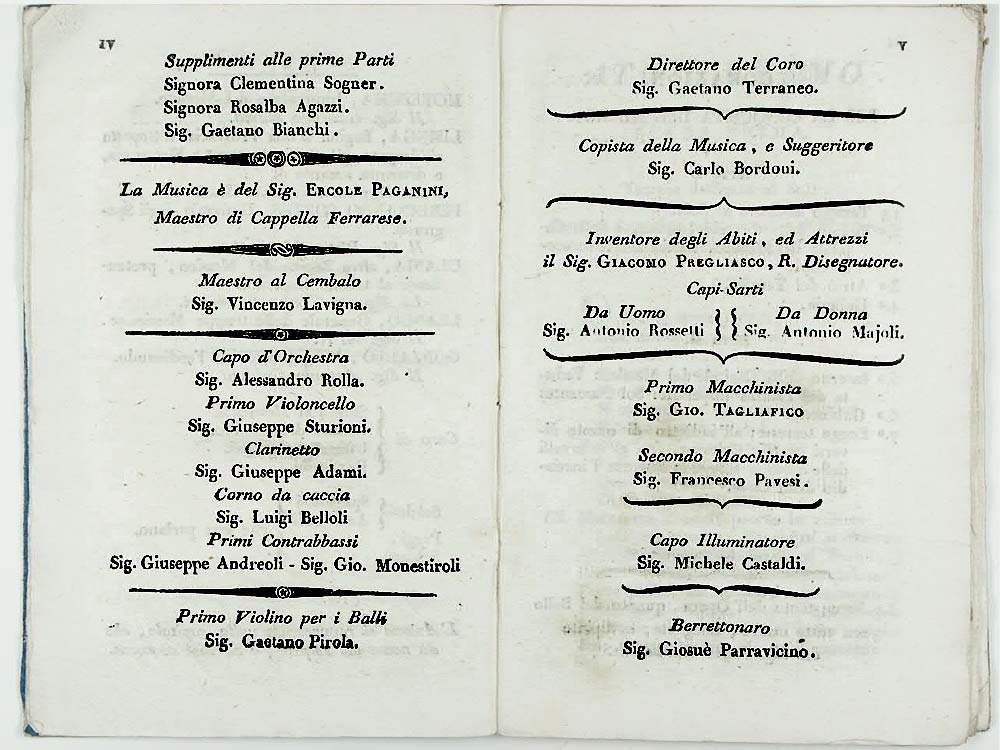 IV
Supplimenti alle prime Parti
Signora Clementina Sogner.
Signora Rosalba Agazzi.
Sig. Gaetano Bianchi.
La Musica è del Sig. ERCOLE PAGANINI,
Maestro di Cappella Ferrarese.
Maestro al Cembalo
Sig. Vincenzo Lavigna.
Capo d'Orchestra
Sig. Alessandro Rolla.
Primo Violoncello
Sig. Giuseppe Sturioni.
Clarinetto
Sig. Giuseppe Adami.
Corno da caccia
Sig. Luigi Belloli
Primi Contrabbassi
Sig. Giuseppe Andreoli - Sig. Gio. Monestiroli
Primo Violino per i Balli
Sig. Gaetano Pirola.
V
Direttore del Coro
Sig. Gaetano Terraneo.
Copista della Musica, e Suggeritore
Sig. Carlo Bordoni.
Inventore degli Abiti, ed Attrezzi
il Sig. GIACOMO PREGLIASCO, R. Disegnatore.
Capi-Sarti
Da Uomo } { Da Donna
Sig. Antonio Rossetti } { Sig. Antonio Majoli.
Primo Macchinista
Sig. GIO. TAGLIAFICO
Secondo Macchinista
Sig. Francesco Pavesi.
Capo Illuminatore
Sig. Michele Castaldi.
Berrettonaro
Sig. Giosuè Parravicino.